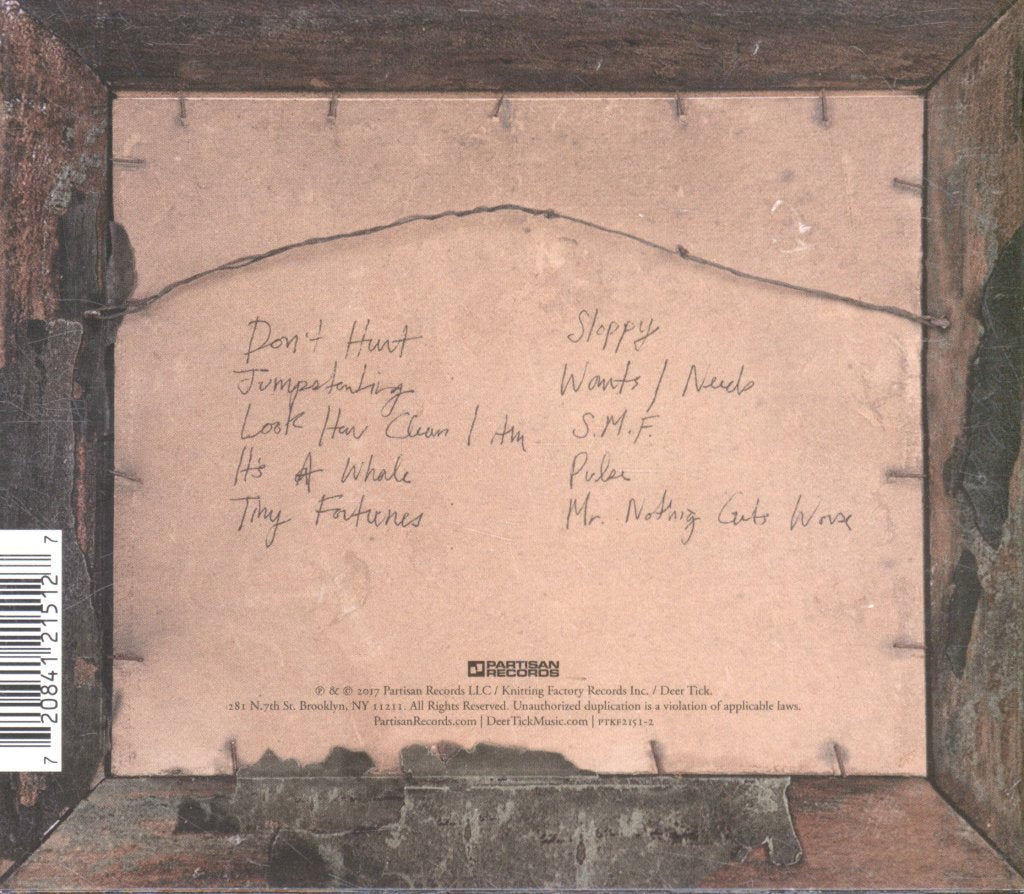 Don't Hurt
Jumpstarting
Look How Clean I Am
It's A Whale
Tiny Fortunes
Sloppy
Wants / Needs
S.M.F.
Pulse
Mr. Nothing Gets Worse
PARTISAN
RECORDS
℗ & © 2017 Partisan Records LLC / Knitting Factory Records Inc. / Deer Tick.
281 N.7th St. Brooklyn, NY 11211. All Rights Reserved. Unauthorized duplication is a violation of applicable laws.
PartisanRecords.com | DeerTickMusic.com | PTKF2151-2
7 20841 21512 7